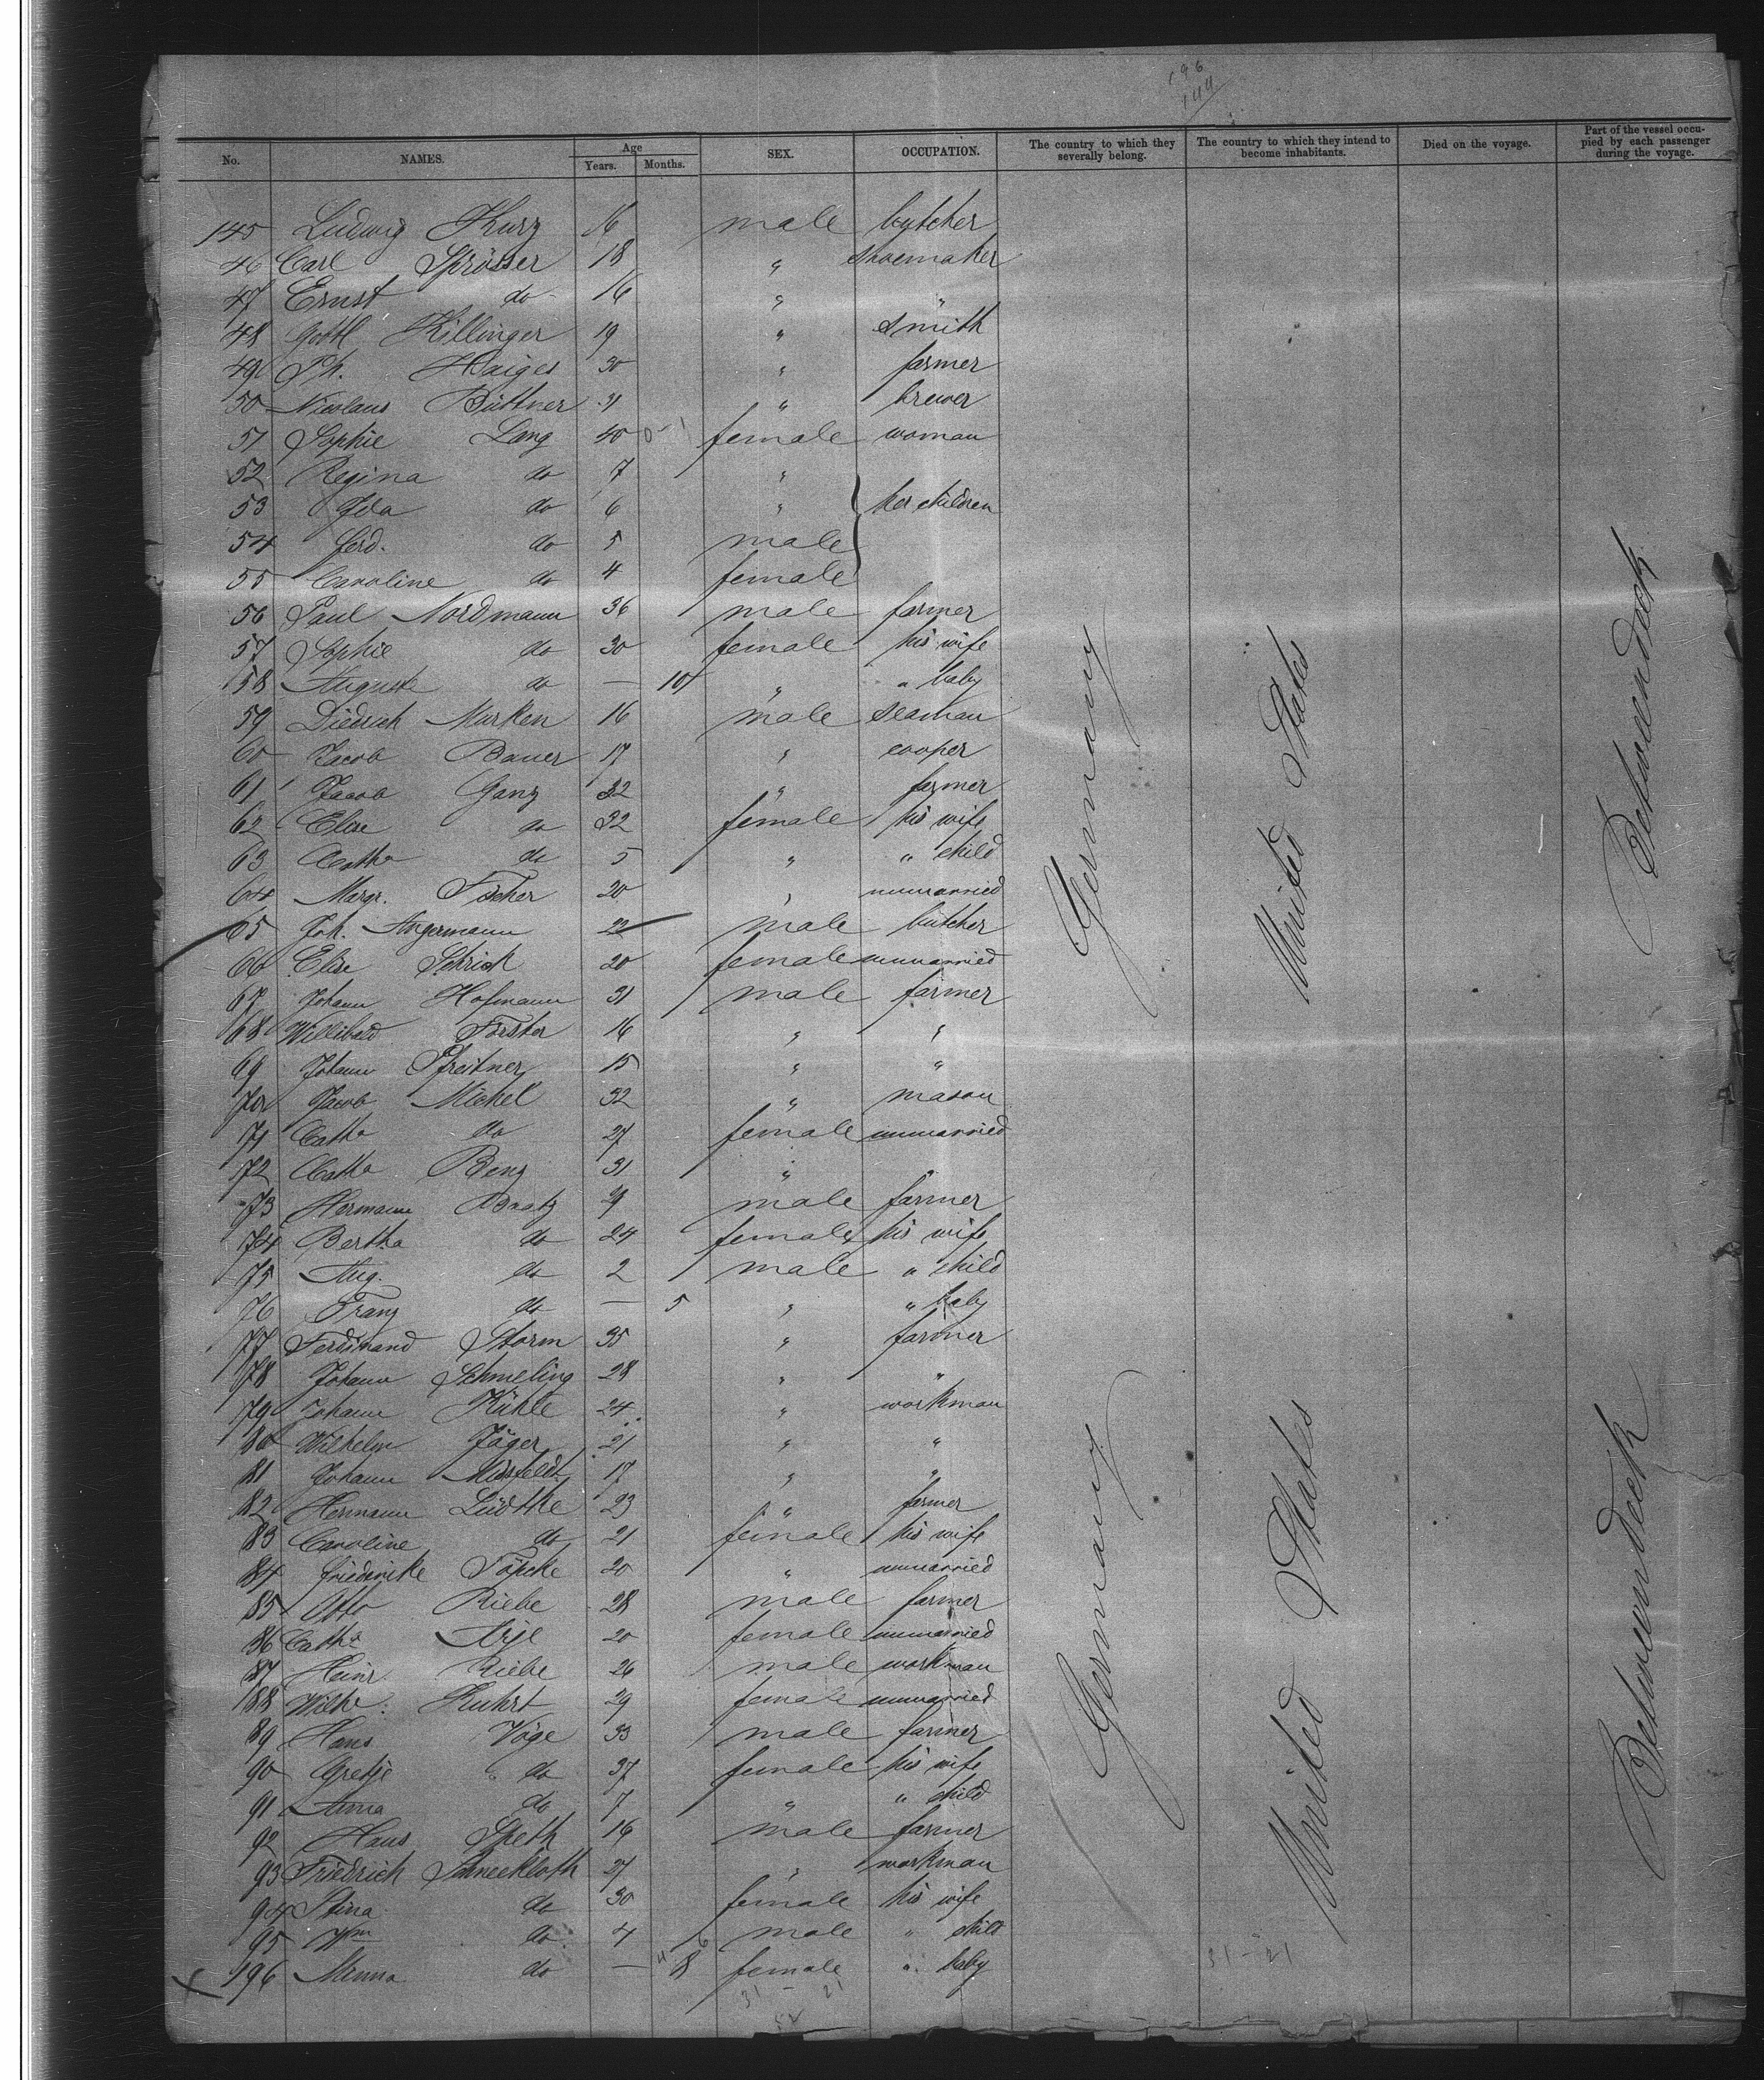 196
144
No. NAMES. Age Years. Months. SEX. OCCUPATION. The country to which they severally belong. The country to which they intend to become inhabitants. Died on the voyage. Part of the vessel occupied by each passenger during the voyage.
145 Ludwig Kurz 16 male butcher
46 Carl Sprösser 18 " shoemaker
47 Ernst do 16 " "
48 Gottl Killinger 19 " smith
49 Ph. Haiges 30 " farmer
50 Nicolaus Büttner 31 " brewer
51 Sophie Lang 40 female woman
52 Regina do 7 "
53 Ida do 6 " her children
54 Ferd. do 5 male
55 Caroline do 4 female
56 Paul Nordmann 36 male farmer
57 Sophie do 30 female his wife
58 Auguste do — 10 " " baby
59 Diedrich Murken 16 male seaman
60 Jacob Bauer 17 " cooper
61 Jacob Ganz 32 " farmer
62 Elise do 32 female his wife
63 Catha do 5 " " child
64 Margr. Fischer 20 " unmarried
65 Joh. Angermann 22 male butcher
66 Elise Schrick 20 female unmarried
67 Johann Hofmann 31 male farmer
68 Willibald Forster 16 " "
69 Johann 15 " "
70 Jacob Michel 32 " mason
71 Catha do 27 female unmarried
72 Catha Benz 31 "
73 Hermann 29 male farmer
74 Bertha do 24 female his wife
75 Aug. do 2 male " child
76 Franz do — 5 " " baby
77 Ferdinand Storm 35 " farmer
78 Johann Schmeling 28 " "
79 Johann Kühle 24 " workman
80 Wilhelm Jäger 21 " "
81 Johann Missfeldt 17 " "
82 Hermann Lüdtke 23 " farmer
83 Caroline do 21 female his wife
84 Friederike Töpcke 20 " unmarried
85 Otto Riebe 28 male farmer
86 Catha 20 female unmarried
87 Heinr. Riebe 26 male workman
88 Wilhe. Kuhrt 29 female unmarried
89 Hans Vöge 33 male farmer
90 Gretje do 37 female his wife
91 Anna do 7 " " child
92 Hans Speth 16 male farmer
93 Friedrich Schneekloth 27 " workman
94 Stina do 30 female his wife
95 Wm do 4 male " child
196 Minna do — 8 female " baby
Germany United States Betweendeck
Germany United States Betweendeck
31 - 21
31 - 21
52